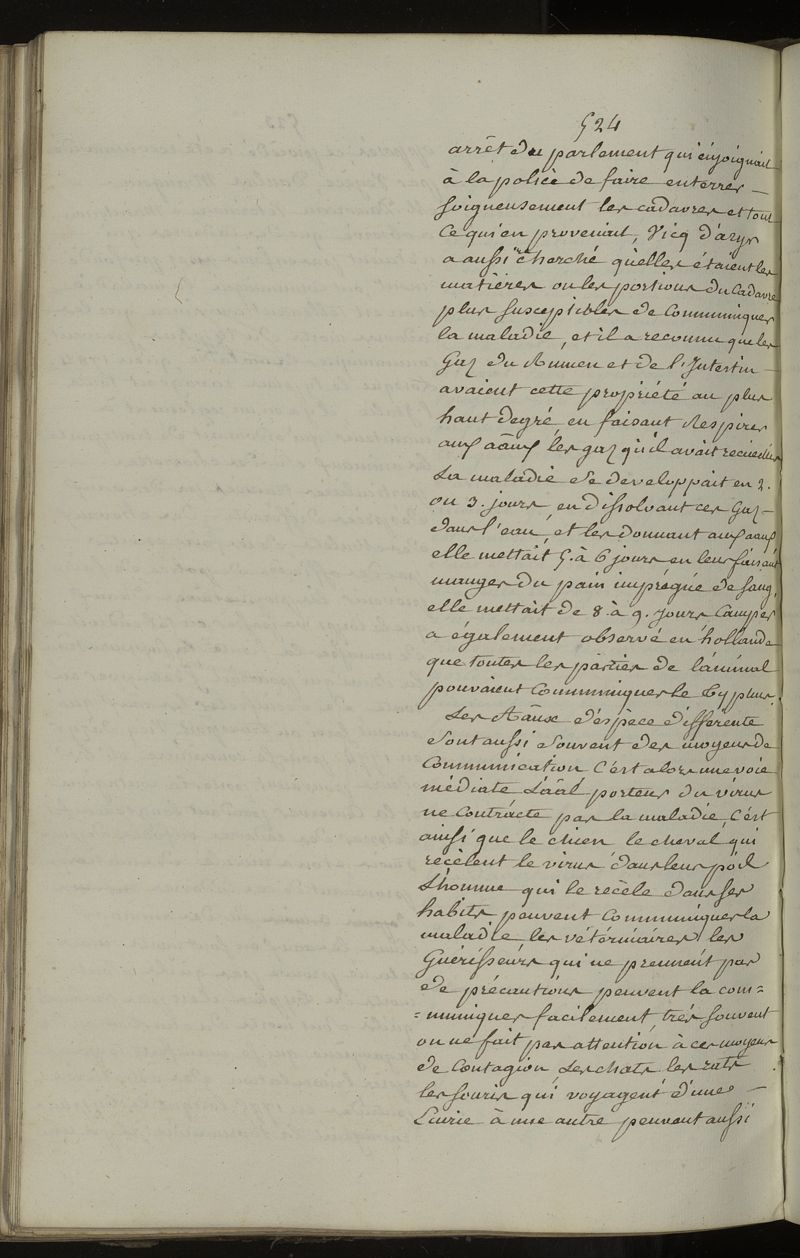 524
arrêt du parlement qui enjoignait
à la police de faire enterrer —
soigneusement les cadavres et tout
ce qui en provenait, Vicq d'azyr
a aussi cherché quelles étaient les
matières ou les portions du Cadavre
plus susceptibles de Communiquer
la maladie, et il a reconnu que les
Gaz du Rumen et de l'Intestin —
avaient cette propriété au plus
haut degré en faisant Respirer
aux aâux les gaz qu'il avait recueillis
La maladie se developpait en 2.
ou 3. jours, en Dissolvant ces Gaz —
dans l'eau, et les donnant aux aaux
elle mettait 5. à 6 jours en leur faisant
manger du pain impregné de sang,
elle mettait de 8. à 9. jours Camper
a également observé en hollande
que toutes les parties de l'animal
pouvaient Communiquer le Typhus.
Les Aâux d'éspèce différente
sont aussi souvent des moyens de
Communication C'est alors une voie
médiate L'aâl porteur du virus
ne Contracte pas la maladie, C'est
ainsi que le chien le cheval qui
recèlent le virus dans leur poil
L'homme qui le recèle dans ses
habits peuvent Communiquer la
maladie les vétérinaires les
Guérisseurs qui ne prennent pas
de précautions peuvent la com=
=muniquer facilement, très souvent
on ne fait pas attention à ces moyens
de Contagion, Les chats les rats
les souris qui voyagent d'une —
Ecurie à une autre peuvent aussi